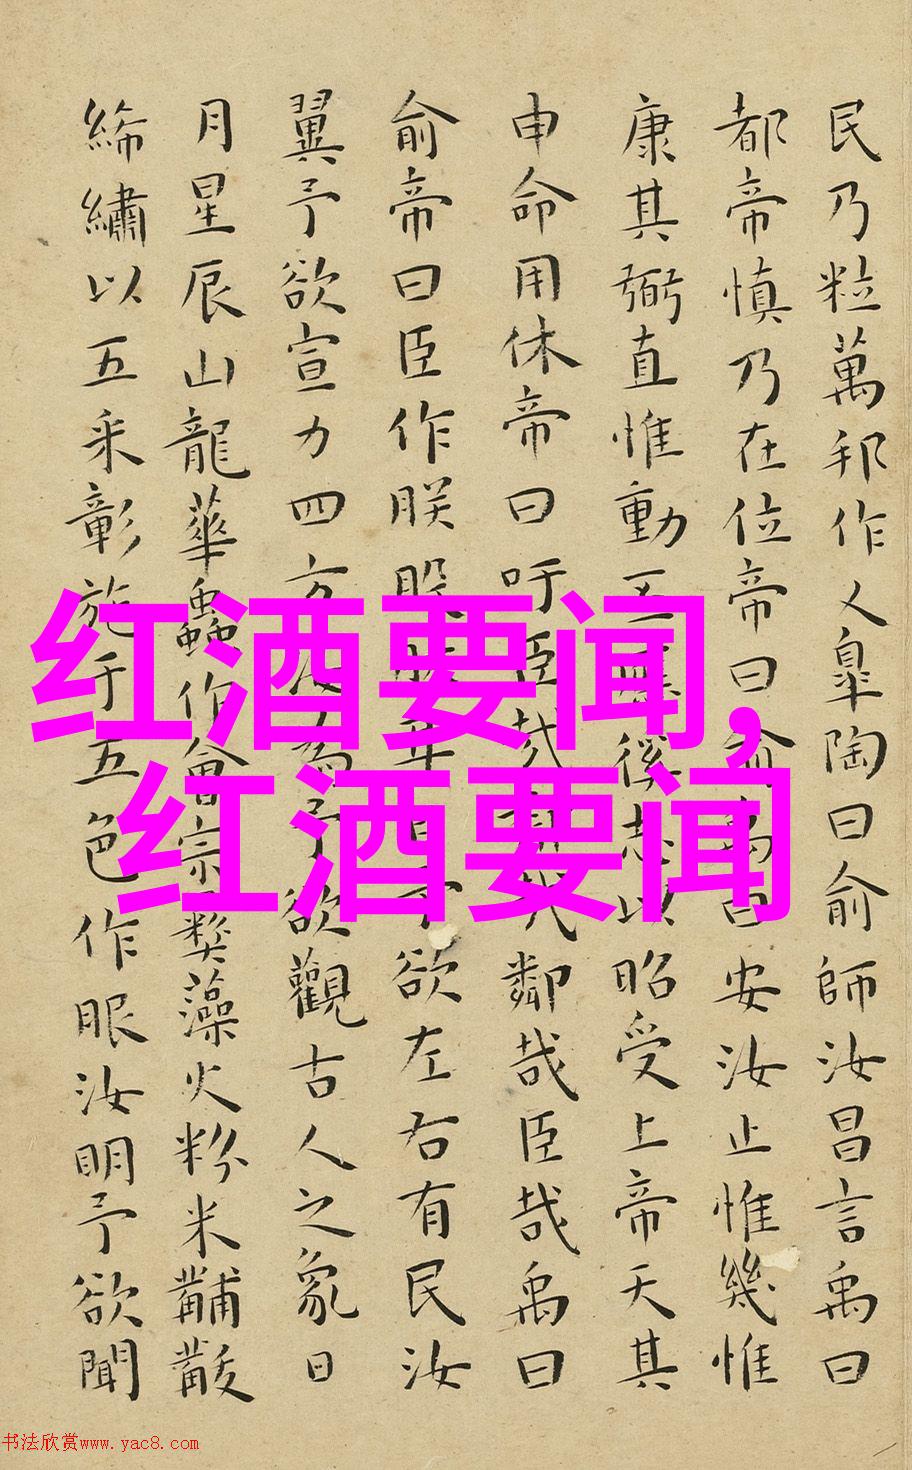 民乃粒萬邦作乂皐陶曰俞師汝昌言禹曰
都帝慎乃在位帝曰俞禹曰安汝止惟幾惟
康其弼直惟動徯志以昭受上帝天其
申命用休帝曰吁臣哉鄰哉臣哉禹曰
俞帝曰臣作朕股予欲左右有民汝
翼予欲宣力四方為予欲觀古人之象日
月星辰山龍華蟲作會宗彝藻火粉米黼黻
絺繡以五采彰施于五色作服汝明予欲聞
红酒要闻,
红酒要闻
书法欣赏www.yac8.com